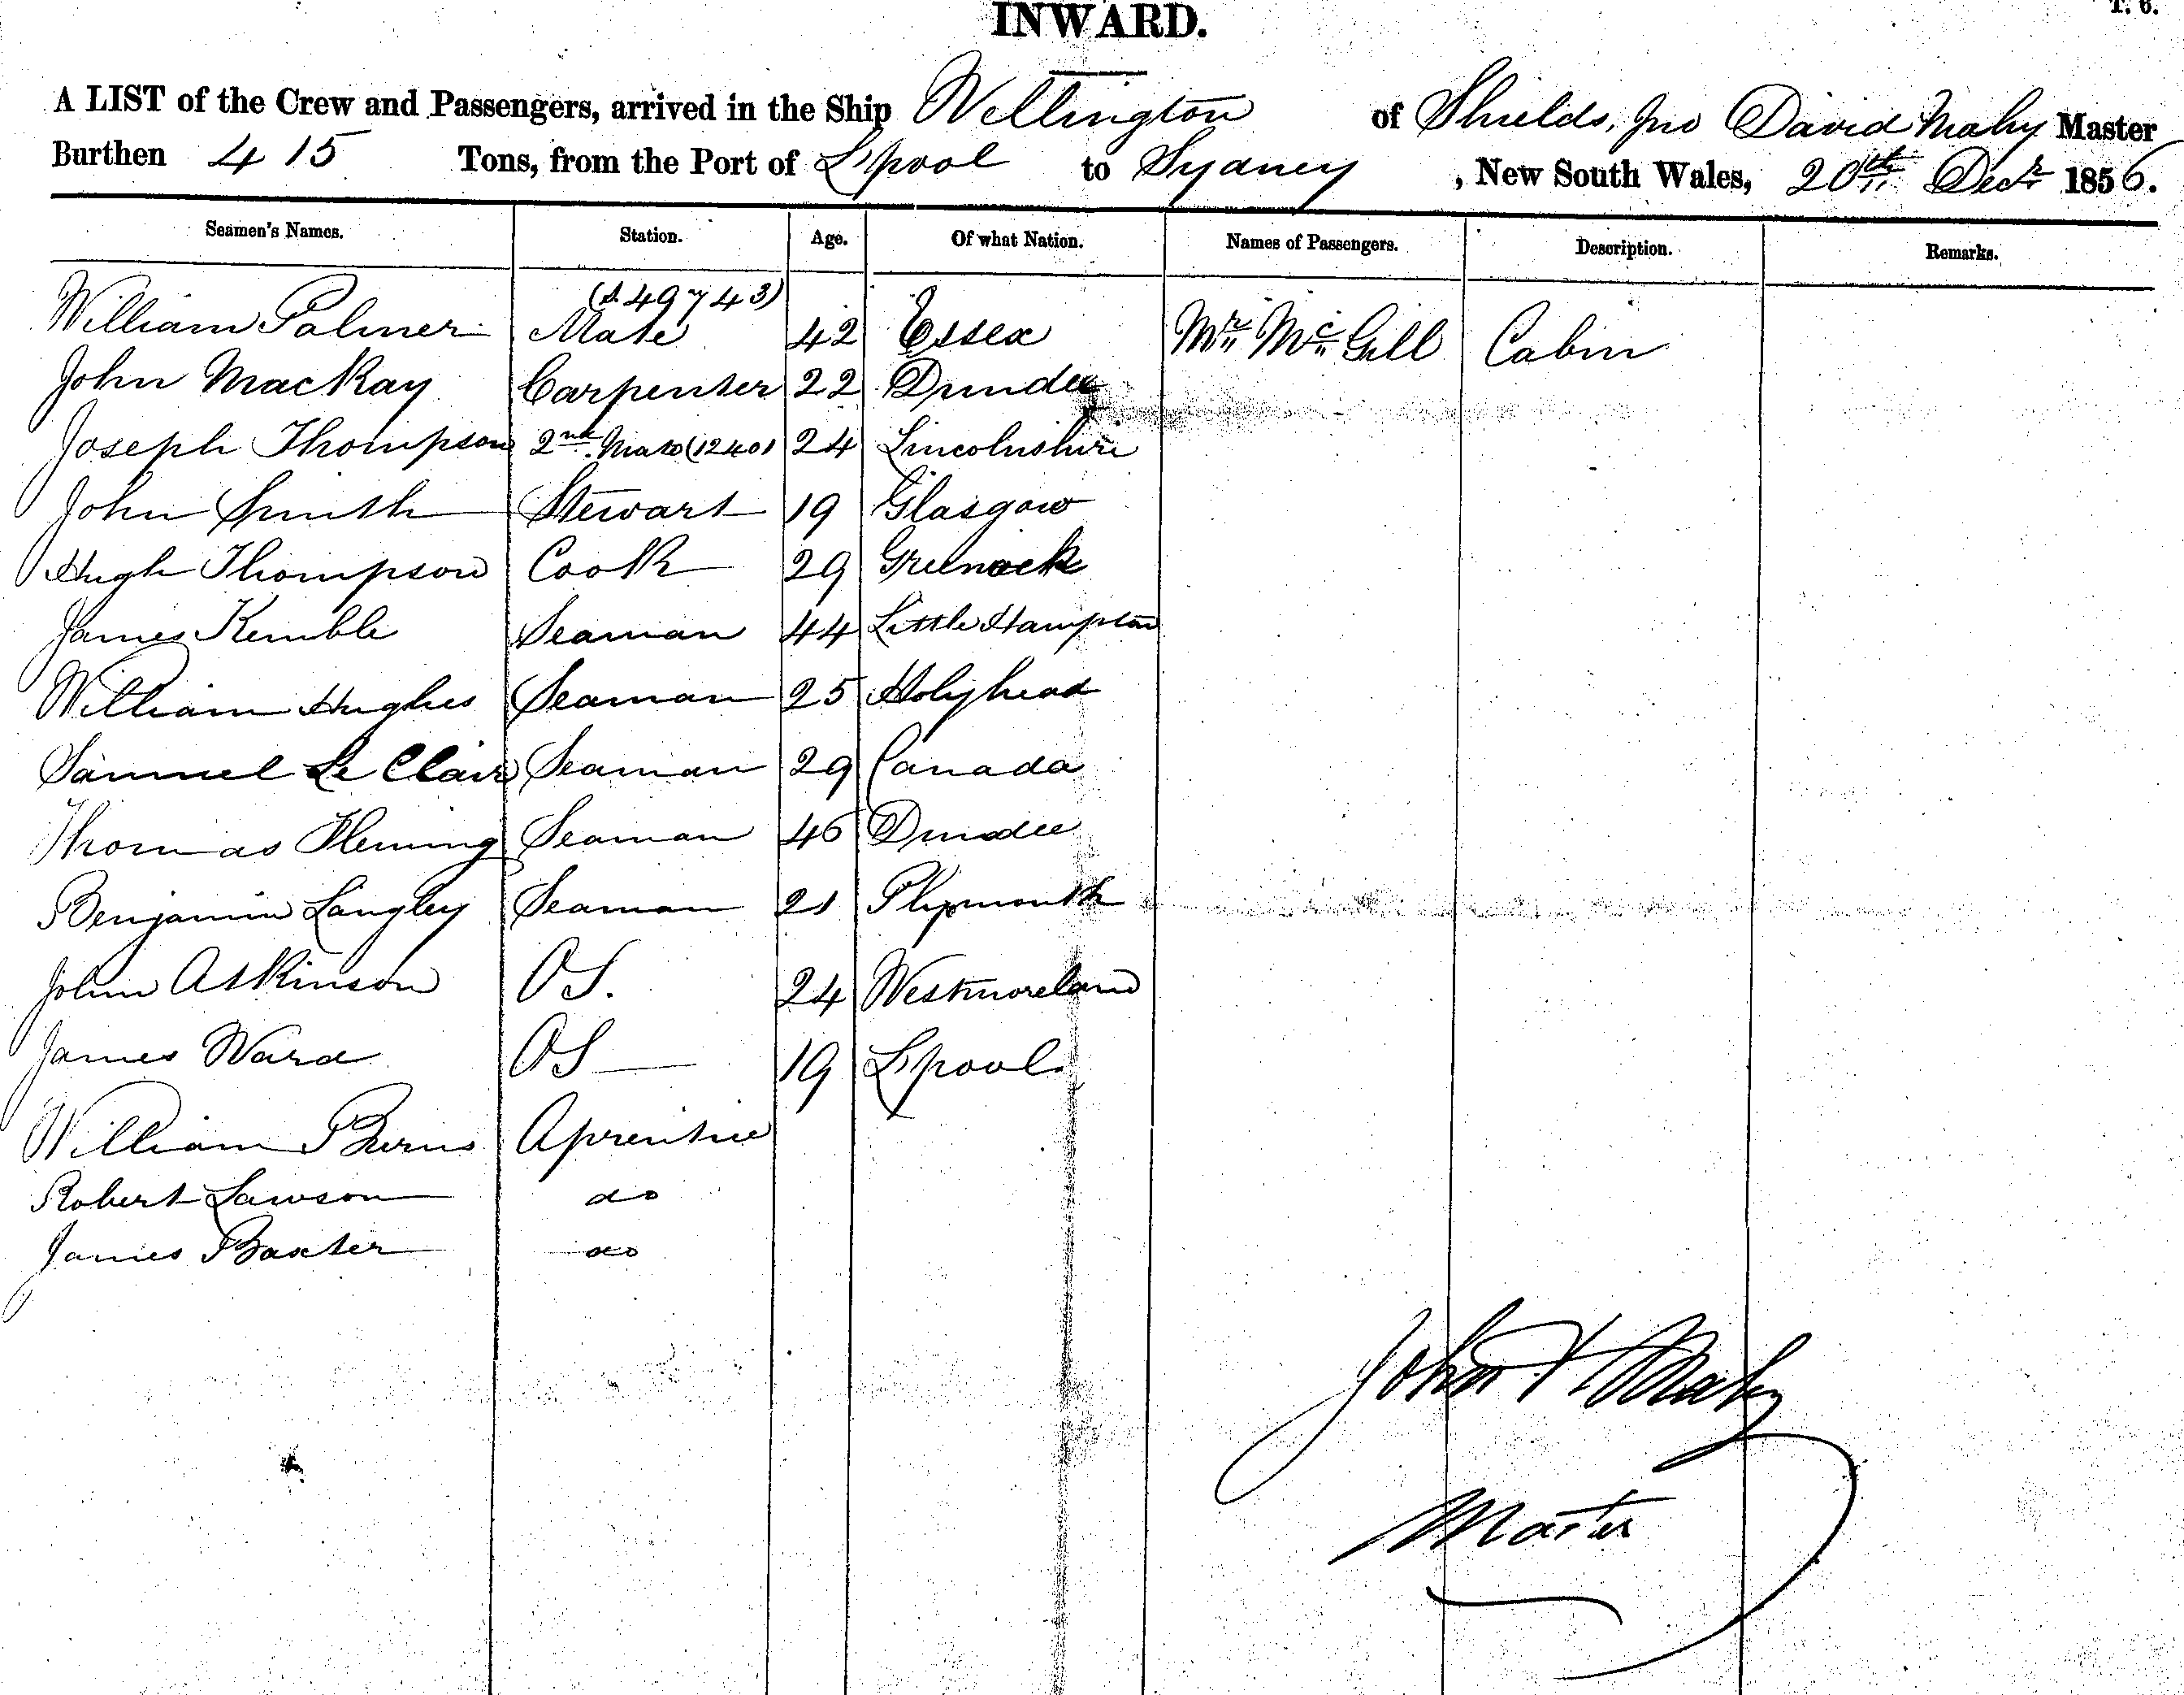 T. 6.
INWARD.
A LIST of the Crew and Passengers, arrived in the Ship Wellington of Shields, Jno David Mahy Master
Burthen 415 Tons, from the Port of L'pool to Sydney, New South Wales, 20th Decr 1856.
Seamen's Names. Station. Age. Of what Nation. Names of Passengers. Description. Remarks.
(A.49743)
William Palmer Mate 42 Essex Mr McGill Cabin
John MacKay Carpenter 22 Dundee
Joseph Thompson 2nd Mate (12401 24 Lincolnshire
John Smith Stewart 19 Glasgow
Hugh Thompson Cook 29 Greenock
James Kemble Seaman 44 Little Hampton
William Hughes Seaman 25 Holyhead
Samuel Le Clair Seaman 29 Canada
Thomas Fleming Seaman 46 Dundee
Benjamin Langley Seaman 21 Plymouth
John Atkinson OS. 24 Westmoreland
James Ward OS 19 L'pool
William Burns Aprentice
Robert Lawson do
James Baxter do
John Mahy
Master